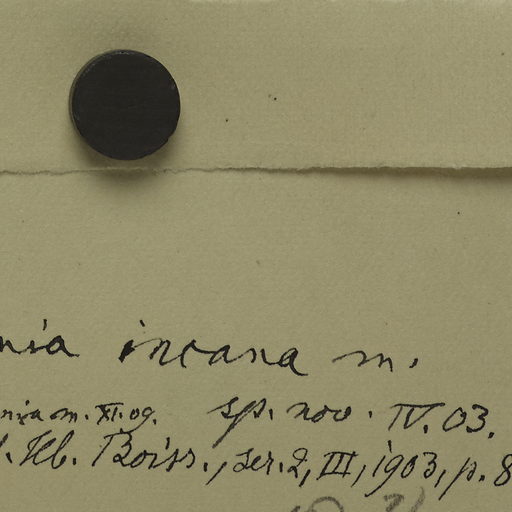 nia incana m.
nia m. XI.09. sp. nov. IV.03.
l. Hb. Boiss., ser.2, III, 1903, p.8